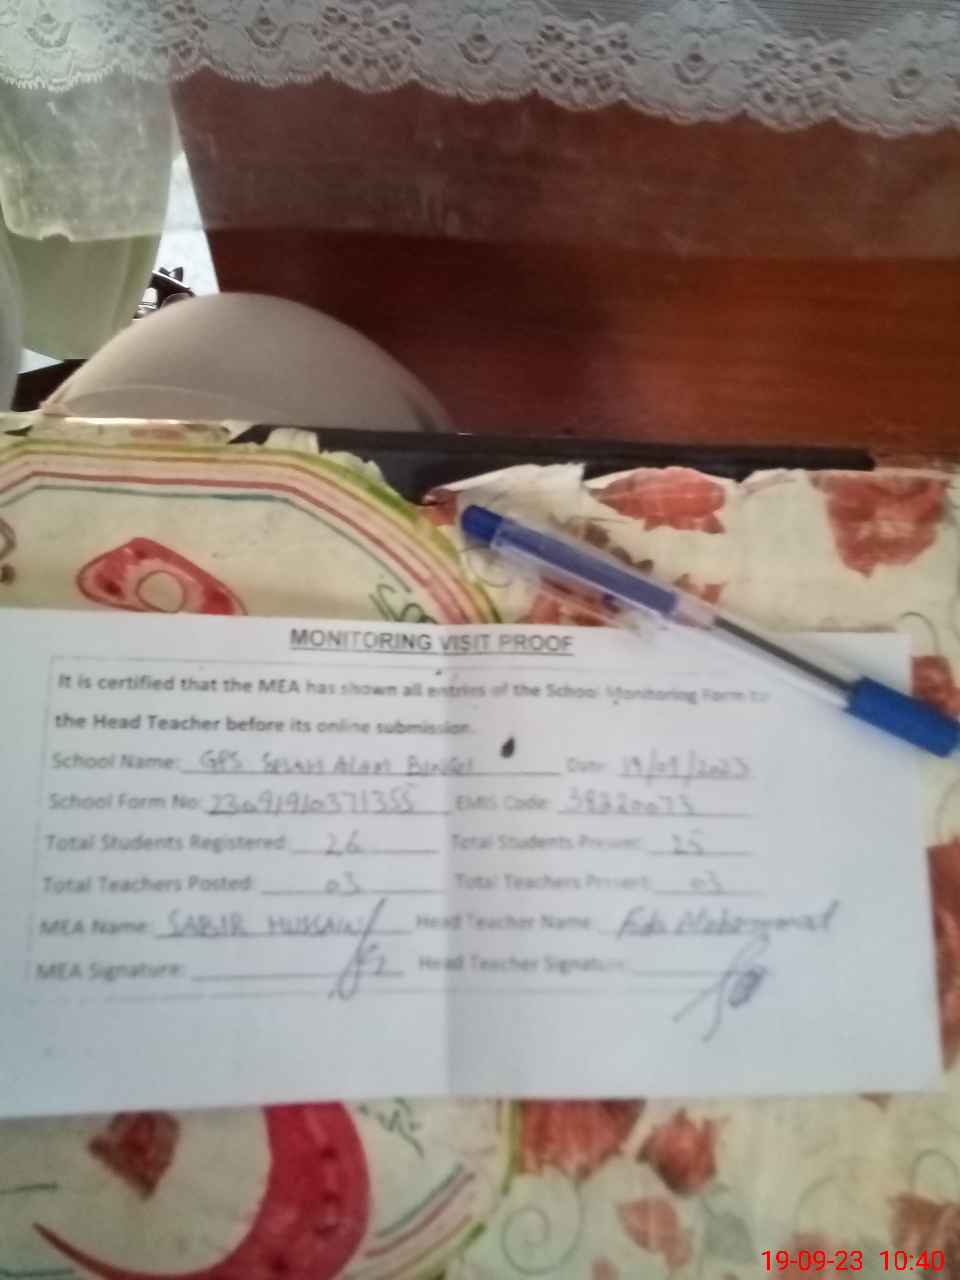 MONITORING VISIT PROOF
It is certified that the MEA has shown all entries of the School Monitoring Form to
the Head Teacher before its online submission.
School Name: GPS Alam Date: 19/09/2023
School Form No: 23091910371355 EMIS Code: 38320073
Total Students Registered: 26 Total Students Present: 25
Total Teachers Posted: 03 Total Teachers Present: 03
MEA Name: SABIR HUSSAIN Head Teacher Name: Fida Mohammad
MEA Signature: Head Teacher Signature:
19-09-23 10:40